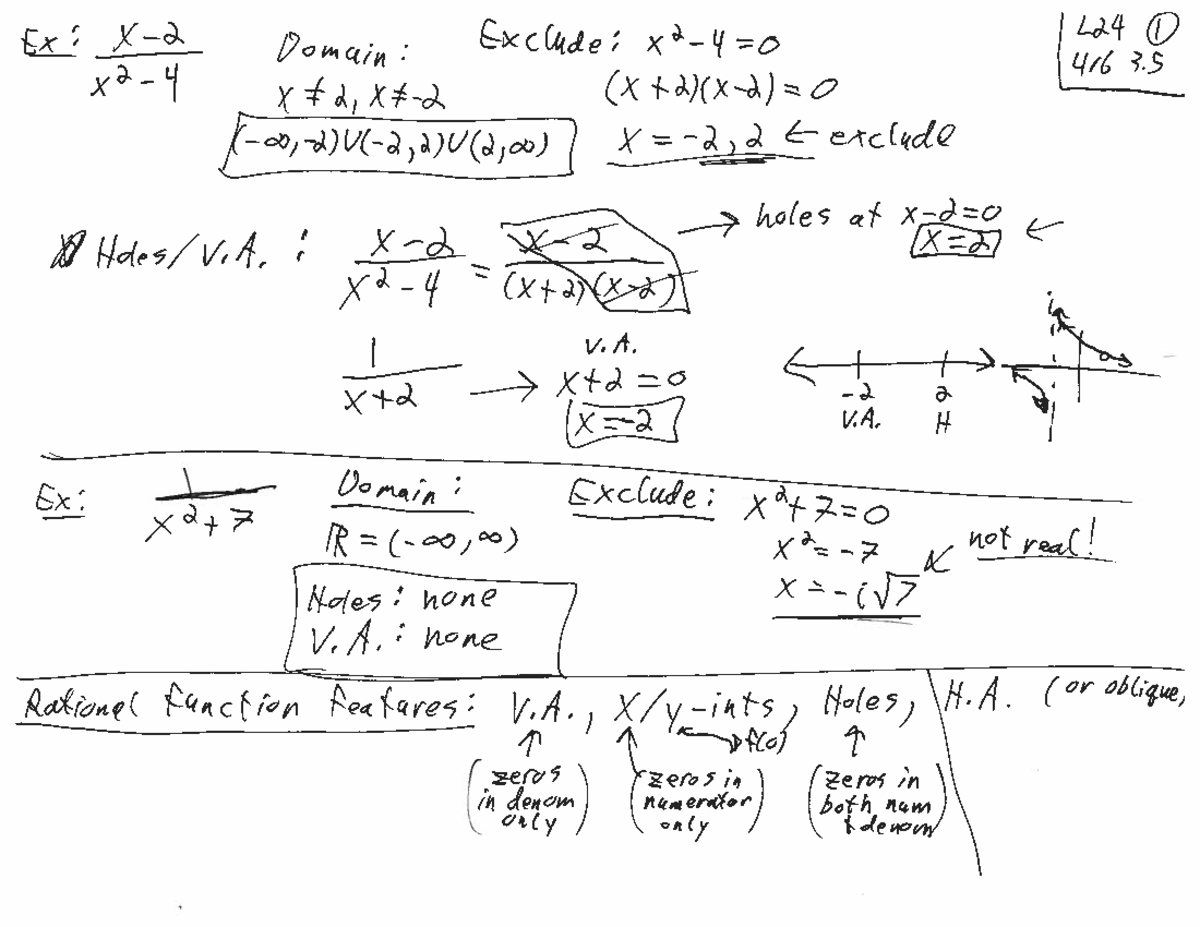 L24 ①
416 3.5
Ex: (x-2)/(x²-4)
Domain:
x ≠ 2, x ≠ -2
(-∞,-2)∪(-2,2)∪(2,∞)
Exclude: x²-4=0
(x+2)(x-2)=0
x = -2, 2 ← exclude
Holes/V.A.: (x-2)/(x²-4) = (x-2)/((x+2)(x-2)) → holes at x-2=0
x=2 ←
1/(x+2) → V.A.
x+2=0
x=-2
-2 2
V.A. H
Ex: 1/(x²+7)
Domain:
ℝ = (-∞,∞)
Holes: none
V.A.: none
Exclude: x²+7=0
x²=-7
x=-i√7
not real!
Rational Function Features: V.A., X/y-ints, Holes, H.A. (or oblique,
f(0)
(zeros in denom only)
(zeros in numerator only)
(zeros in both num + denom)